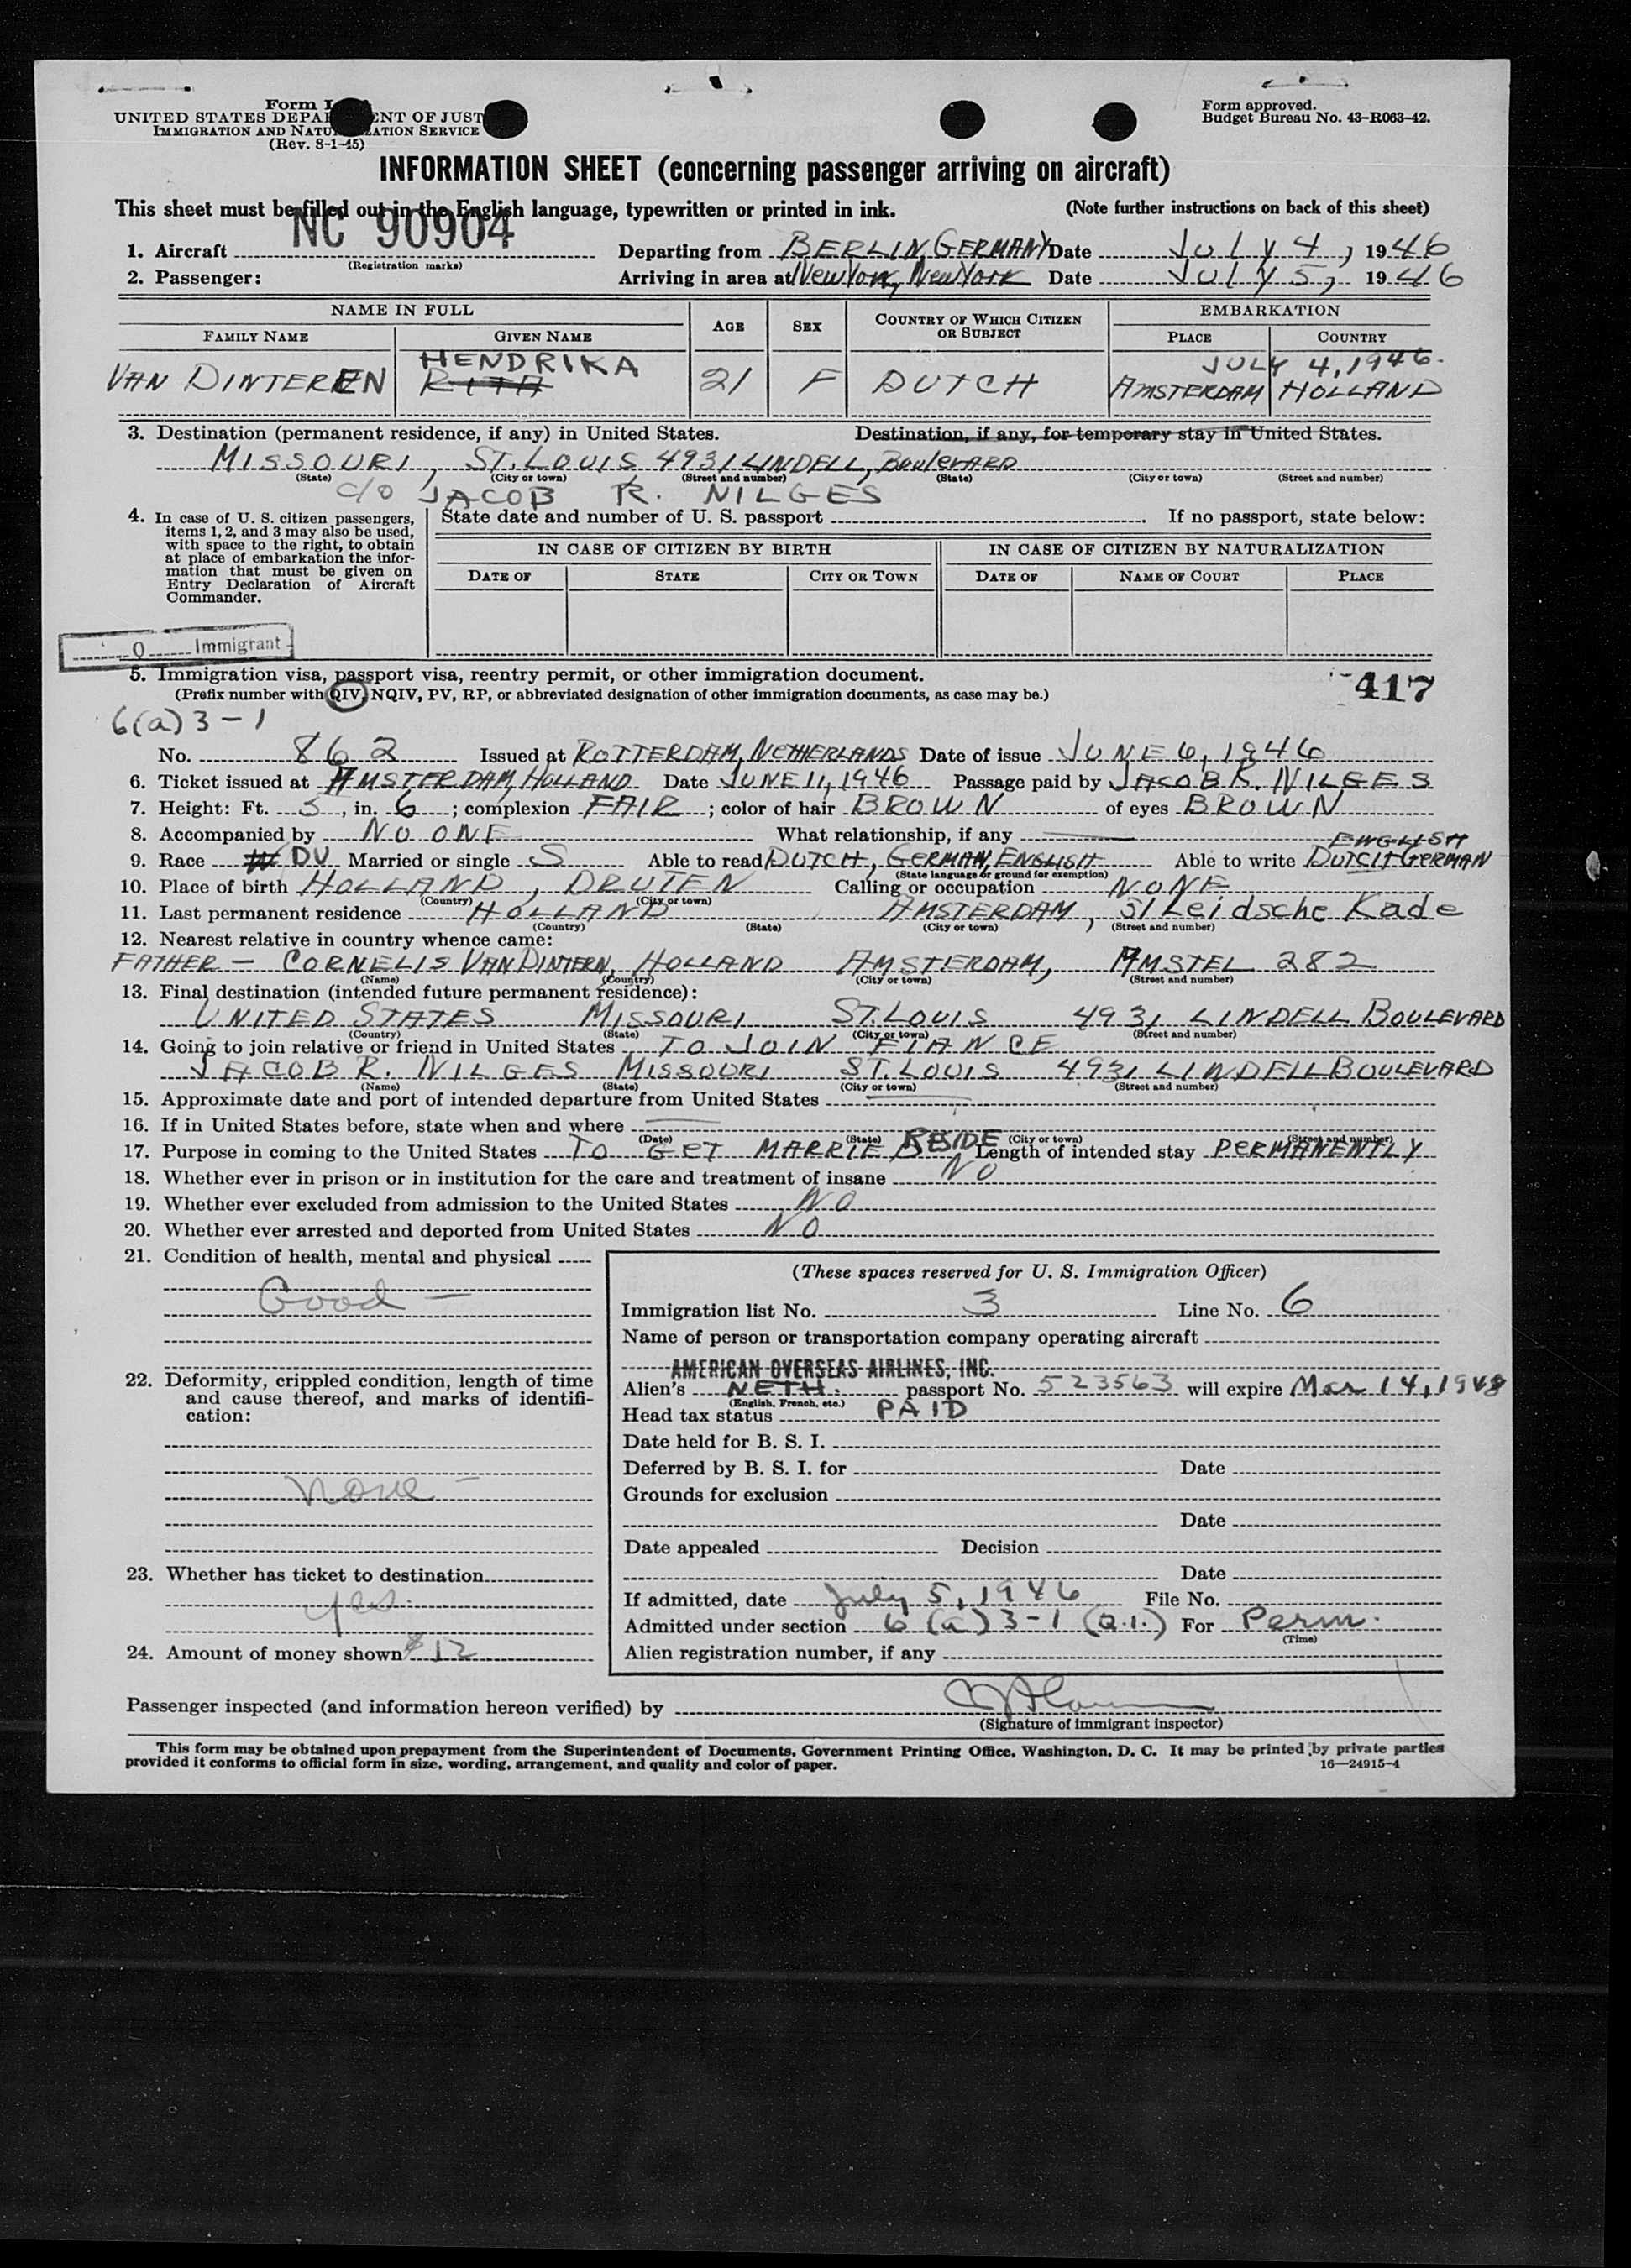 Form I
UNITED STATES DEPARTMENT OF JUST
IMMIGRATION AND NATURALIZATION SERVICE
(Rev. 8-1-45)
Form approved.
Budget Bureau No. 43-R063-42.
INFORMATION SHEET (concerning passenger arriving on aircraft)
This sheet must be filled out in the English language, typewritten or printed in ink. (Note further instructions on back of this sheet)
NC 90904
1. Aircraft Departing from BERLIN, GERMANY Date JULY 4, 1946
(Registration marks)
2. Passenger: Arriving in area at New York, New York Date JULY 5, 1946
NAME IN FULL AGE SEX COUNTRY OF WHICH CITIZEN OR SUBJECT EMBARKATION
FAMILY NAME GIVEN NAME PLACE COUNTRY
HENDRIKA JULY 4, 1946.
VAN DINTEREN RITA 21 F DUTCH AMSTERDAM HOLLAND
3. Destination (permanent residence, if any) in United States. Destination, if any, for temporary stay in United States.
MISSOURI, ST. LOUIS 4931 LINDELL, BOULEVARD
(State) (City or town) (Street and number) (State) (City or town) (Street and number)
c/o JACOB R. NILGES
4. In case of U. S. citizen passengers, items 1, 2, and 3 may also be used, with space to the right, to obtain at place of embarkation the information that must be given on Entry Declaration of Aircraft Commander.
State date and number of U. S. passport If no passport, state below:
IN CASE OF CITIZEN BY BIRTH IN CASE OF CITIZEN BY NATURALIZATION
DATE OF STATE CITY OR TOWN DATE OF NAME OF COURT PLACE
Q Immigrant
5. Immigration visa, passport visa, reentry permit, or other immigration document.
(Prefix number with QIV, NQIV, PV, RP, or abbreviated designation of other immigration documents, as case may be.)
417
6(a)3-1
No. 862 Issued at ROTTERDAM, NETHERLANDS Date of issue JUNE 6, 1946
6. Ticket issued at AMSTERDAM, HOLLAND Date JUNE 11, 1946 Passage paid by JACOB R. NILGES
7. Height: Ft. 5, in. 6; complexion FAIR; color of hair BROWN of eyes BROWN
8. Accompanied by NO ONE What relationship, if any
ENGLISH
9. Race W DU Married or single S Able to read DUTCH, GERMAN, ENGLISH Able to write DUTCH GERMAN
(State language or ground for exemption)
10. Place of birth HOLLAND, DRUTEN Calling or occupation NONE
(Country) (City or town)
11. Last permanent residence HOLLAND AMSTERDAM, 51 Leidsche Kade
(Country) (State) (City or town) (Street and number)
12. Nearest relative in country whence came:
FATHER - CORNELIS VAN DINTERN, HOLLAND AMSTERDAM, AMSTEL 282
(Name) (Country) (City or town) (Street and number)
13. Final destination (intended future permanent residence):
UNITED STATES MISSOURI ST. LOUIS 4931 LINDELL BOULEVARD
(Country) (State) (City or town) (Street and number)
14. Going to join relative or friend in United States TO JOIN FIANCE
JACOB R. NILGES MISSOURI ST. LOUIS 4931 LINDELL BOULEVARD
(Name) (State) (City or town) (Street and number)
15. Approximate date and port of intended departure from United States
16. If in United States before, state when and where
(Date) (State) (City or town) (Street and number)
17. Purpose in coming to the United States TO GET MARRIE RESIDE Length of intended stay PERMANENTLY
18. Whether ever in prison or in institution for the care and treatment of insane NO
19. Whether ever excluded from admission to the United States NO
20. Whether ever arrested and deported from United States NO
21. Condition of health, mental and physical
Good -
22. Deformity, crippled condition, length of time and cause thereof, and marks of identification:
None -
23. Whether has ticket to destination
yes.
24. Amount of money shown $12
(These spaces reserved for U. S. Immigration Officer)
Immigration list No. 3 Line No. 6
Name of person or transportation company operating aircraft
AMERICAN OVERSEAS AIRLINES, INC.
Alien's NETH. passport No. 523563 will expire Mar 14, 1948
(English, French, etc.)
Head tax status PAID
Date held for B. S. I.
Deferred by B. S. I. for Date
Grounds for exclusion
Date
Date appealed Decision
Date
If admitted, date July 5, 1946 File No.
Admitted under section 6(a)3-1 (Q.I.) For Perm.
(Time)
Alien registration number, if any
Passenger inspected (and information hereon verified) by
(Signature of immigrant inspector)
This form may be obtained upon prepayment from the Superintendent of Documents, Government Printing Office, Washington, D. C. It may be printed by private parties
provided it conforms to official form in size, wording, arrangement, and quality and color of paper. 16—24915-4